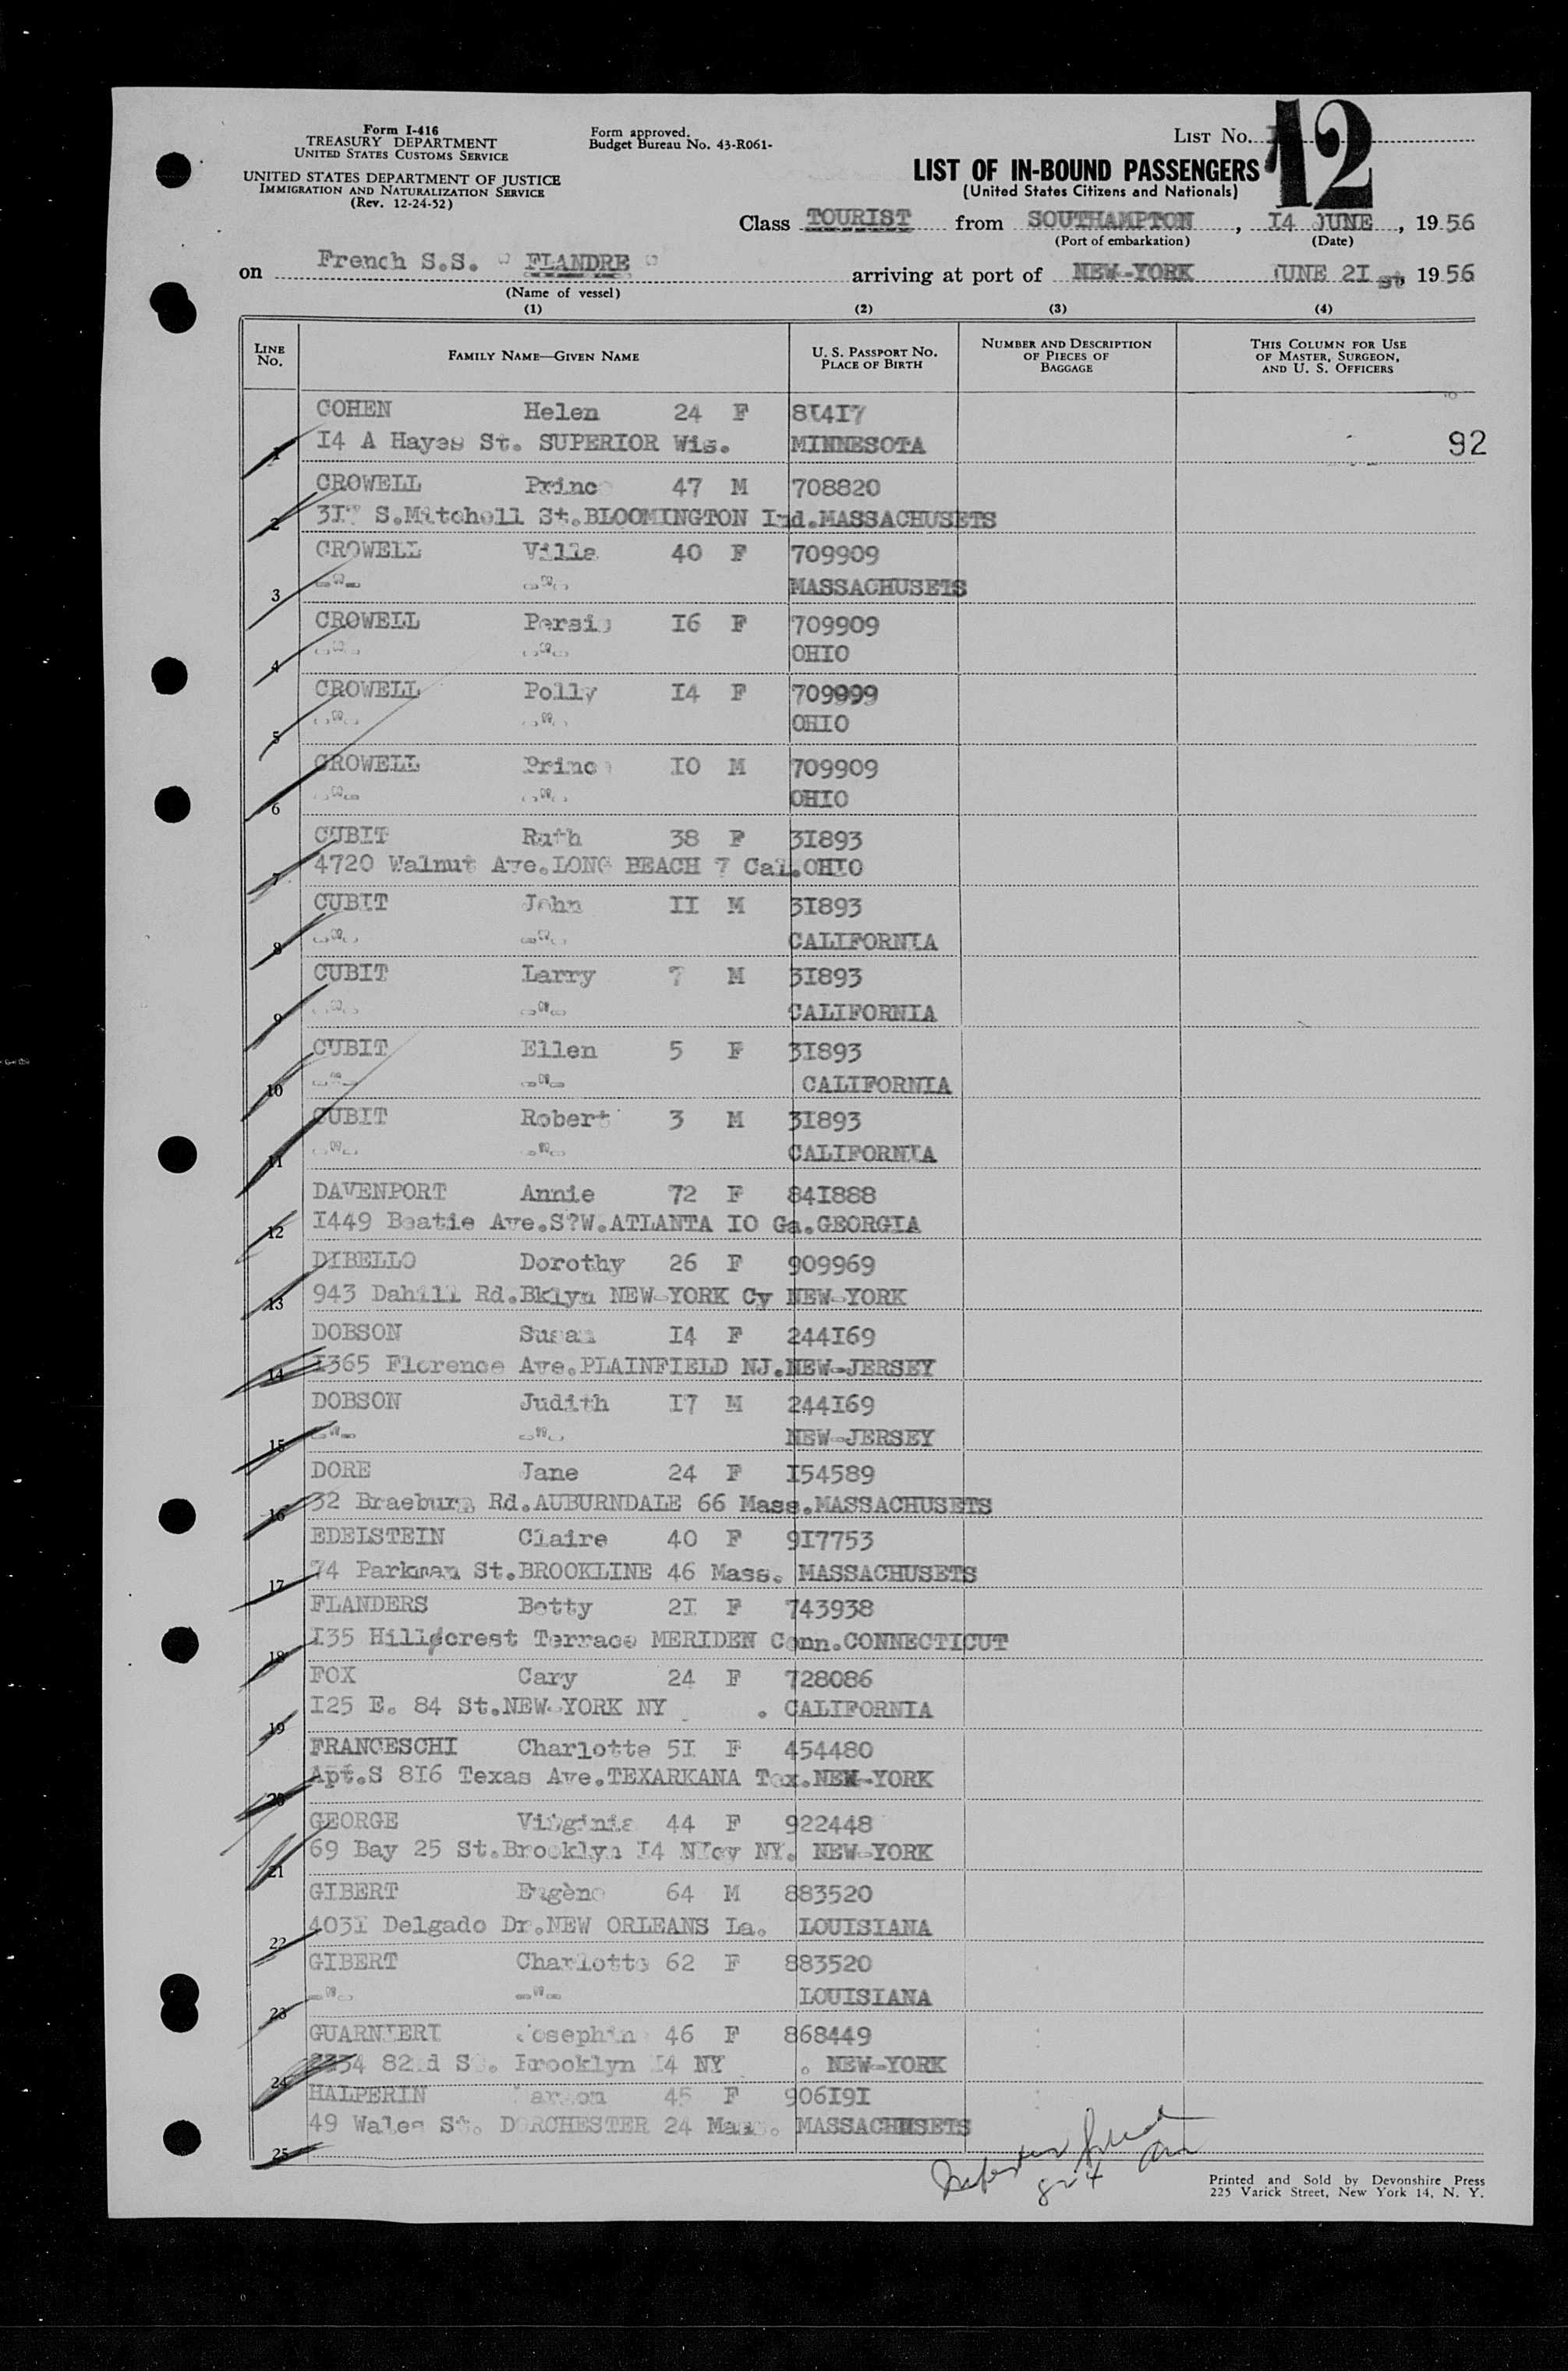 Form I-416
TREASURY DEPARTMENT
UNITED STATES CUSTOMS SERVICE
UNITED STATES DEPARTMENT OF JUSTICE
IMMIGRATION AND NATURALIZATION SERVICE
(Rev. 12-24-52)
Form approved.
Budget Bureau No. 43-R061-
LIST No. 12
LIST OF IN-BOUND PASSENGERS
(United States Citizens and Nationals)
Class TOURIST from SOUTHAMPTON , I4 JUNE , 1956
(Port of embarkation) (Date)
on French S.S. " FLANDRE " arriving at port of NEW-YORK JUNE 2I st, 1956
(Name of vessel)
(1) (2) (3) (4)
LINE No. FAMILY NAME—GIVEN NAME U. S. PASSPORT No. PLACE OF BIRTH NUMBER AND DESCRIPTION OF PIECES OF BAGGAGE THIS COLUMN FOR USE OF MASTER, SURGEON, AND U. S. OFFICERS
COHEN Helen 24 F
1 I4 A Hayes St. SUPERIOR Wis. MINNESOTA 92
CROWELL Prince 47 M 708820
2 S.Mitchell St.BLOOMINGTON Ind.MASSACHUSETS
CROWELL Villa 40 F 709909
3 -"- -"- MASSACHUSETS
CROWELL Persis I6 F 709909
4 -"- -"- OHIO
CROWELL Polly I4 F 709999
5 -"- -"- OHIO
CROWELL Prince IO M 709909
6 -"- -"- OHIO
CUBIT Ruth 38 F 3I893
7 4720 Walnut Ave.LONG BEACH 7 Cal.OHIO
CUBIT John II M 3I893
8 -"- -"- CALIFORNIA
CUBIT Larry 7 M 3I893
9 -"- -"- CALIFORNIA
CUBIT Ellen 5 F 3I893
10 -"- -"- CALIFORNIA
CUBIT Robert 3 M 3I893
11 -"- -"- CALIFORNIA
DAVENPORT Annie 72 F 84I888
12 I449 Beatie Ave.S?W.ATLANTA IO Ga.GEORGIA
DIBELLO Dorothy 26 F 909969
13 943 Dahill Rd.Bklyn NEW-YORK Cy NEW-YORK
DOBSON Susan I4 F 244I69
14 I365 Florence Ave.PLAINFIELD NJ.NEW-JERSEY
DOBSON Judith I7 M 244I69
15 -"- -"- NEW-JERSEY
DORE Jane 24 F I54589
16 32 Braeburn Rd.AUBURNDALE 66 Mass.MASSACHUSETS
EDELSTEIN Claire 40 F 9I7753
17 74 Parkman St.BROOKLINE 46 Mass. MASSACHUSETS
FLANDERS Betty 2I F 743938
18 I35 Hillcrest Terrace MERIDEN Conn.CONNECTICUT
FOX Cary 24 F 728086
19 I25 E. 84 St.NEW-YORK NY . CALIFORNIA
FRANCESCHI Charlotte 5I F 454480
20 Apt.S 8I6 Texas Ave.TEXARKANA Tex.NEW-YORK
GEORGE Virginia 44 F 922448
21 69 Bay 25 St.Brooklyn I4 NY. NEW-YORK
GIBERT Eugène 64 M 883520
22 403I Delgado Dr.NEW ORLEANS La. LOUISIANA
GIBERT Charlotte 62 F 883520
23 -"- -"- LOUISIANA
GUARNIERI Josephin 46 F 868449
24 82nd St. Brooklyn I4 NY . NEW-YORK
HALPERIN 45 F 906I9I
25 49 Wales St. DORCHESTER 24 Mass. MASSACHUSETS
Printed and Sold by Devonshire Press
225 Varick Street, New York 14, N. Y.